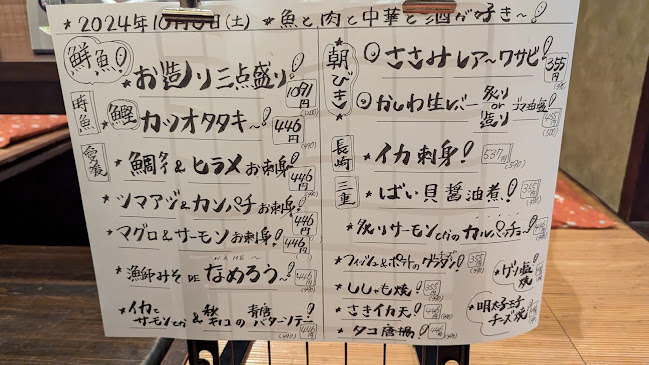 2024年10月5日(土) ★魚と肉と中華と酒が好き〜!
鮮魚!
★お造り三点盛り! 1091円(1200)
時魚
鰹 カツオタタキ〜! 446円(490)
愛媛
★鯛タイ&ヒラメお刺身! 446円(490)
★ツマアジ&カンパチお刺身! 446円(490)
★マグロ&サーモンお刺身! 446円(490)
NAME〜
★漁師みそDEなめろう〜! 446円(490)
★イカとサーモンとか&秋キノコの青唐バターソテー! 446円(490)
朝びき
ささみレア〜ワサビ! 355円(390)
かしわ生レバー 炙りor造り ゴマ油塩! 455円(500)
長崎
★イカ刺身! 537円(590)
三重
★ばい貝醤油煮! 355円(390)
★炙りサーモンとかのカルパッチョ〜! 446円(490)
★フィッシュ&ポテトのチーズグラタン! 355円(390)
★ししゃも焼! 355円(390)
★さきイカ天! 446円(490)
★タコ唐揚! 446円(490)
★ゲソ塩焼!
★明太子玉子チーズ焼!